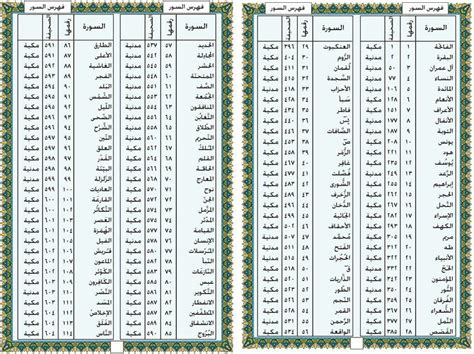 فهرس السور
السورة رقمها الصحيفة
الفاتحة ١ ١ مكية
البقرة ٢ ٢ مدنية
آل عمران ٣ ٥٠ مدنية
النساء ٤ ٧٧ مدنية
المائدة ٥ ١٠٦ مدنية
الأنعام ٦ ١٢٨ مكية
الأعراف ٧ ١٥١ مكية
الأنفال ٨ ١٧٧ مدنية
التوبة ٩ ١٨٧ مدنية
يونس ١٠ ٢٠٨ مكية
هود ١١ ٢٢١ مكية
يوسف ١٢ ٢٣٥ مكية
الرعد ١٣ ٢٤٩ مدنية
إبراهيم ١٤ ٢٥٥ مكية
الحجر ١٥ ٢٦٢ مكية
النحل ١٦ ٢٦٧ مكية
الإسراء ١٧ ٢٨٢ مكية
الكهف ١٨ ٢٩٣ مكية
مريم ١٩ ٣٠٥ مكية
طه ٢٠ ٣١٢ مكية
الأنبياء ٢١ ٣٢٢ مكية
الحج ٢٢ ٣٣٢ مدنية
المؤمنون ٢٣ ٣٤٢ مكية
النور ٢٤ ٣٥٠ مدنية
الفرقان ٢٥ ٣٥٩ مكية
الشعراء ٢٦ ٣٦٧ مكية
النمل ٢٧ ٣٧٧ مكية
القصص ٢٨ ٣٨٥ مكية
السورة رقمها الصحيفة
العنكبوت ٢٩ ٣٩٦ مكية
الروم ٣٠ ٤٠٤ مكية
لقمان ٣١ ٤١١ مكية
السجدة ٣٢ ٤١٥ مكية
الأحزاب ٣٣ ٤١٨ مدنية
سبأ ٣٤ ٤٢٨ مكية
فاطر ٣٥ ٤٣٤ مكية
يس ٣٦ ٤٤٠ مكية
الصافات ٣٧ ٤٤٦ مكية
ص ٣٨ ٤٥٣ مكية
الزمر ٣٩ ٤٥٨ مكية
غافر ٤٠ ٤٦٧ مكية
فصلت ٤١ ٤٧٧ مكية
الشورى ٤٢ ٤٨٣ مكية
الزخرف ٤٣ ٤٨٩ مكية
الدخان ٤٤ ٤٩٦ مكية
الجاثية ٤٥ ٤٩٩ مكية
الأحقاف ٤٦ ٥٠٢ مكية
محمد ٤٧ ٥٠٧ مدنية
الفتح ٤٨ ٥١١ مدنية
الحجرات ٤٩ ٥١٥ مدنية
ق ٥٠ ٥١٨ مكية
الذاريات ٥١ ٥٢٠ مكية
الطور ٥٢ ٥٢٣ مكية
النجم ٥٣ ٥٢٦ مكية
القمر ٥٤ ٥٢٨ مكية
الرحمن ٥٥ ٥٣١ مدنية
الواقعة ٥٦ ٥٣٤ مكية
فهرس السور
السورة رقمها الصحيفة
الحديد ٥٧ ٥٣٧ مدنية
المجادلة ٥٨ ٥٤٢ مدنية
الحشر ٥٩ ٥٤٥ مدنية
الممتحنة ٦٠ ٥٤٩ مدنية
الصف ٦١ ٥٥١ مدنية
الجمعة ٦٢ ٥٥٣ مدنية
المنافقون ٦٣ ٥٥٤ مدنية
التغابن ٦٤ ٥٥٦ مدنية
الطلاق ٦٥ ٥٥٨ مدنية
التحريم ٦٦ ٥٦٠ مدنية
الملك ٦٧ ٥٦٢ مكية
القلم ٦٨ ٥٦٤ مكية
الحاقة ٦٩ ٥٦٦ مكية
المعارج ٧٠ ٥٦٨ مكية
نوح ٧١ ٥٧٠ مكية
الجن ٧٢ ٥٧٢ مكية
المزمل ٧٣ ٥٧٤ مكية
المدثر ٧٤ ٥٧٥ مكية
القيامة ٧٥ ٥٧٧ مكية
الإنسان ٧٦ ٥٧٨ مدنية
المرسلات ٧٧ ٥٨٠ مكية
النبأ ٧٨ ٥٨٢ مكية
النازعات ٧٩ ٥٨٣ مكية
عبس ٨٠ ٥٨٥ مكية
التكوير ٨١ ٥٨٦ مكية
الانفطار ٨٢ ٥٨٧ مكية
المطففين ٨٣ ٥٨٧ مكية
الانشقاق ٨٤ ٥٨٩ مكية
البروج ٨٥ ٥٩٠ مكية
السورة رقمها الصحيفة
الطارق ٨٦ ٥٩١ مكية
الأعلى ٨٧ ٥٩١ مكية
الغاشية ٨٨ ٥٩٢ مكية
الفجر ٨٩ ٥٩٣ مكية
البلد ٩٠ ٥٩٤ مكية
الشمس ٩١ ٥٩٥ مكية
الليل ٩٢ ٥٩٥ مكية
الضحى ٩٣ ٥٩٦ مكية
الشرح ٩٤ ٥٩٦ مكية
التين ٩٥ ٥٩٧ مكية
العلق ٩٦ ٥٩٧ مكية
القدر ٩٧ ٥٩٨ مكية
البينة ٩٨ ٥٩٨ مدنية
الزلزلة ٩٩ ٥٩٩ مدنية
العاديات ١٠٠ ٥٩٩ مكية
القارعة ١٠١ ٦٠٠ مكية
التكاثر ١٠٢ ٦٠٠ مكية
العصر ١٠٣ ٦٠١ مكية
الهمزة ١٠٤ ٦٠١ مكية
الفيل ١٠٥ ٦٠١ مكية
قريش ١٠٦ ٦٠٢ مكية
الماعون ١٠٧ ٦٠٢ مكية
الكوثر ١٠٨ ٦٠٢ مكية
الكافرون ١٠٩ ٦٠٣ مكية
النصر ١١٠ ٦٠٣ مدنية
المسد ١١١ ٦٠٣ مكية
الإخلاص ١١٢ ٦٠٤ مكية
الفلق ١١٣ ٦٠٤ مكية
الناس ١١٤ ٦٠٤ مكية